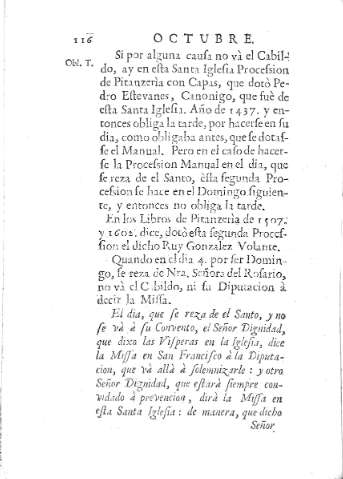 116 OCTUBRE.
Si por alguna causa no và el Cabil-
OB. T. do, ay en esta Santa Iglesia Procession
de Pitanzerìa con Capas, que dotò Pe-
dro Estevanes, Canonigo, que fuè de
esta Santa Iglesia. Año de 1437. y en-
tonces obliga la tarde, por hacerse en su
dia, como obligaba antes, que se dotas-
se el Manual. Pero en el caso de hacer-
se la Procession Manual en el dia, que
se reza de el Santo, esta segunda Pro-
cession se hace en el Domingo siguien-
te, y entonces no obliga la tarde.
En los Libros de Pitanzerìa de 1507.
y 1602. dice, dotò esta segunda Proces-
sion el dicho Ruy Gonzalez Volante.
Quando en el dia 4. por ser Domin-
go, se reza de Nra. Señora del Rosario,
no và el Cabildo, ni su Diputacion à
decir la Missa.
El dia, que se reza de el Santo, y no
se và à su Convento, el Señor Dignidad,
que dixo las Visperas en la Iglesia, dice
la Missa en San Francisco à la Diputa-
cion, que và allà à solemnizarle: y otro
Señor Dignidad, que estarà siempre con-
vidado à prevencion, dirà la Missa en
esta Santa Iglesia: de manera, que dicho
Señor